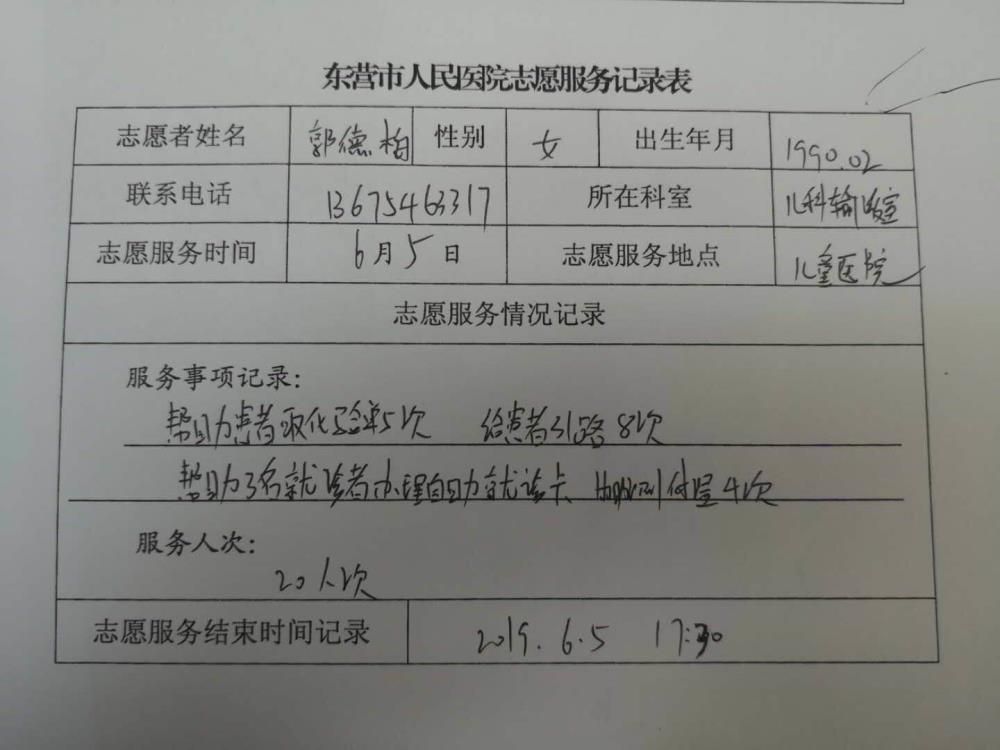 东营市人民医院志愿服务记录表
志愿者姓名 郭德柏 性别 女 出生年月 1990.02
联系电话 13675463317 所在科室 儿科输液室
志愿服务时间 6月5日 志愿服务地点 儿童医院
志愿服务情况记录
服务事项记录：
帮助患者取化验单5次 给患者引路8次
帮助3名就诊者办理自助就诊卡 4次
服务人次：
20人次
志愿服务结束时间记录 2019.6.5 17:30